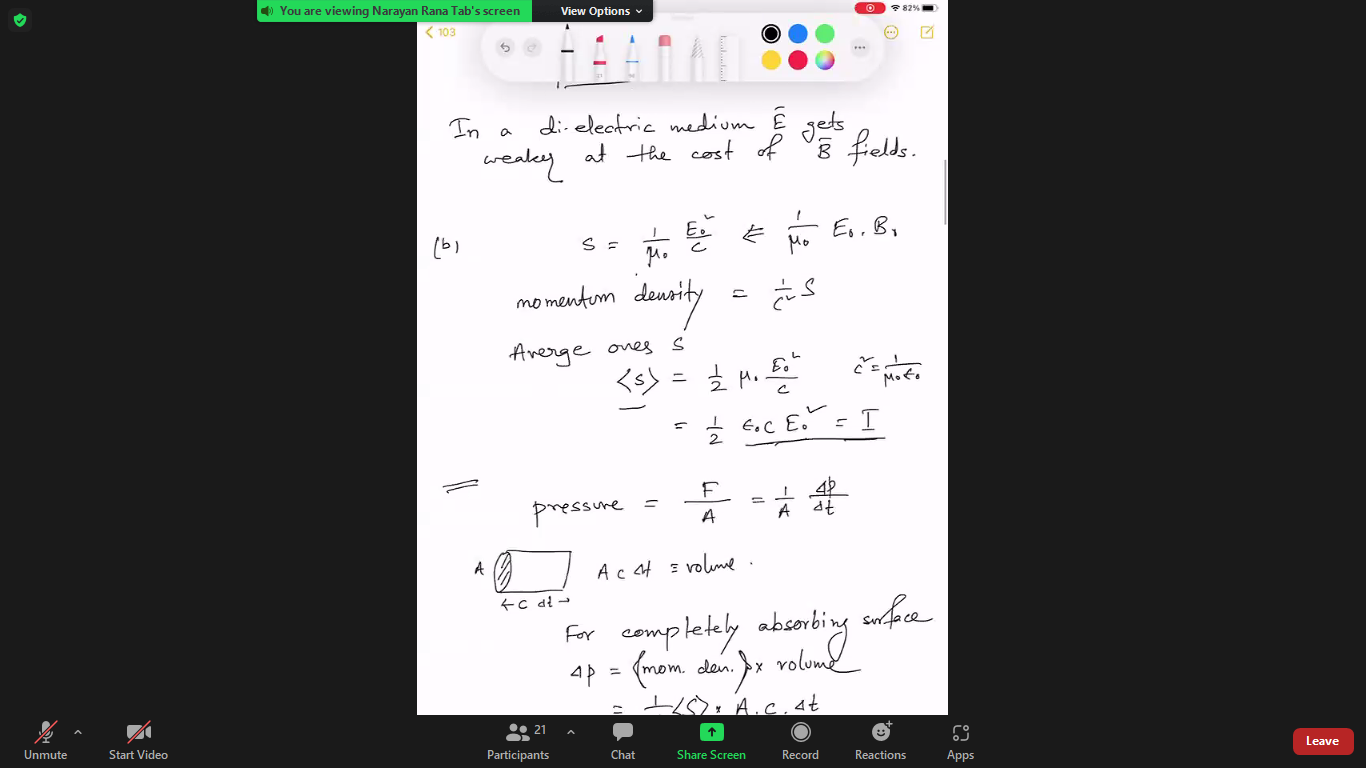 You are viewing Narayan Rana Tab's screen
View Options
82%
103
In a di-electric medium Ē gets
weaker at the cost of B̄ fields.
(b) S = 1/μ₀ E₀²/c ⇐ 1/μ₀ E₀ . B₀
momentum density = 1/c² S
Averge ones S
⟨S⟩ = 1/2 μ₀ E₀²/c c² = 1/μ₀ε₀
= 1/2 ε₀ c E₀² = I
pressure = F/A = 1/A Δp/Δt
A A c Δt ≡ volume .
← c Δt →
For completely absorbing surface
Δp = (mom. den.) × volume
= 1/ ⟨S⟩ × A . c . Δt
Unmute
Start Video
Participants
21
Chat
Share Screen
Record
Reactions
Apps
Leave